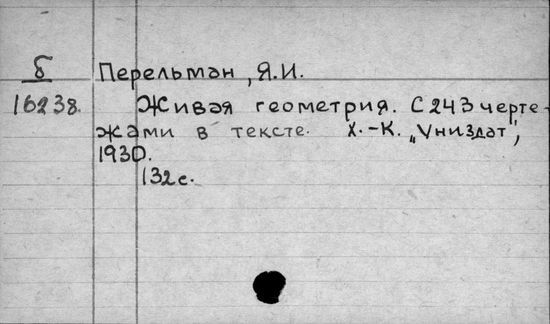 Б Перельман, Я.И.
16238. Живая геометрия. С 243 черте-
жами в тексте. Х.-К. „Униздат",
1930.
132 с.